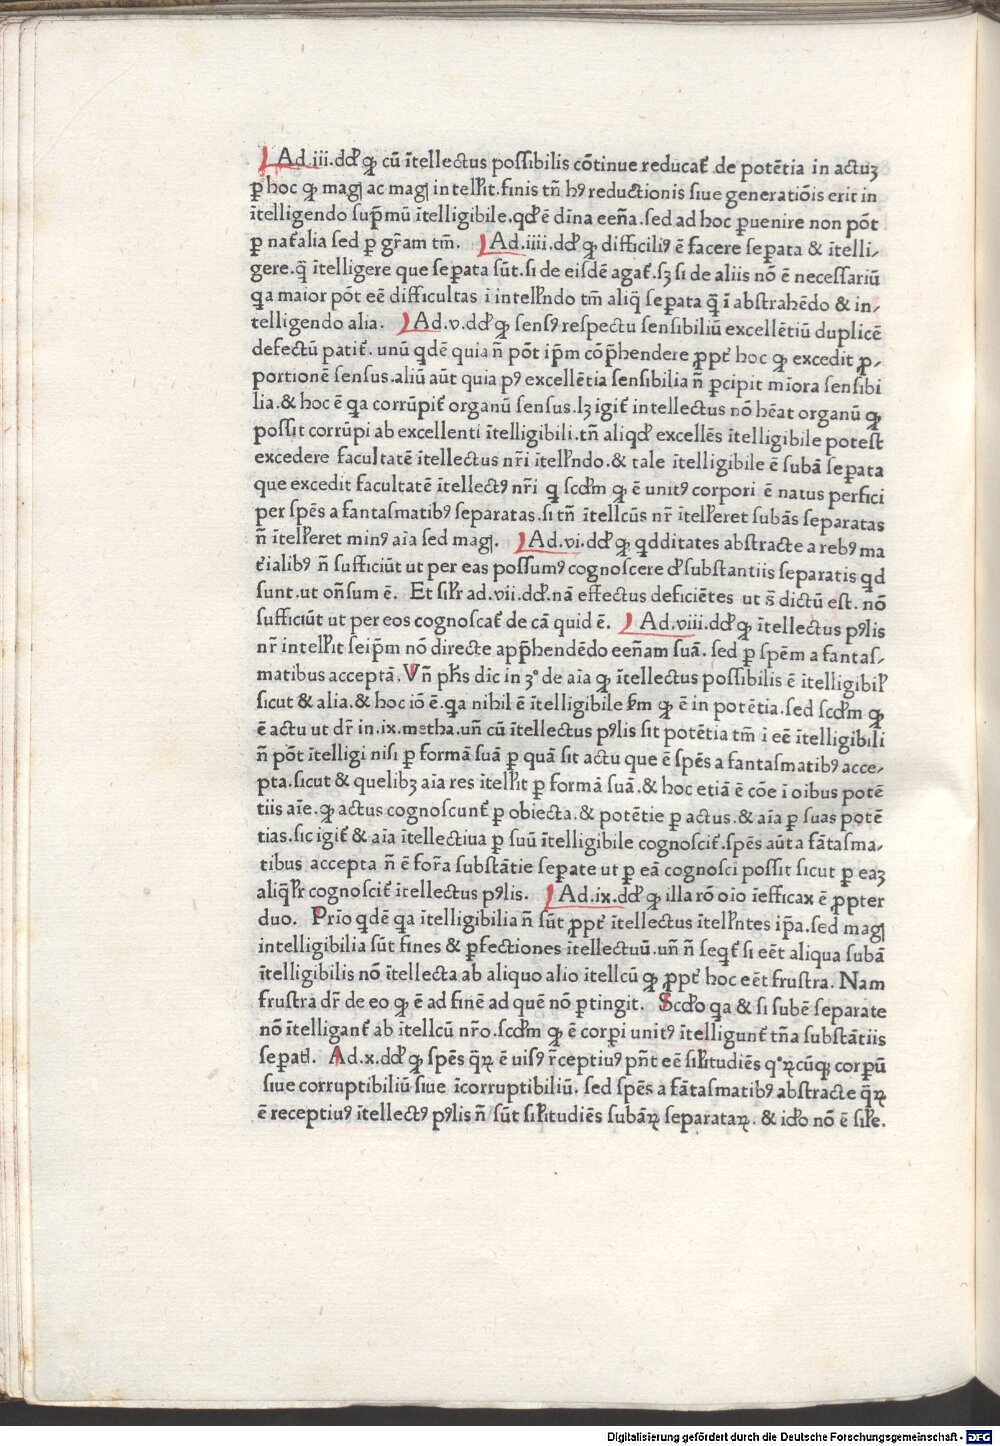 Ad.iii.dd̄ ꝙ cū ītellectus possibilis cōtinue reducat̄ de potētia in actuꝫ
ꝑ hoc ꝙ magꝭ ac magꝭ intell̄it. finis tn̄ hꝰ reductionis siue generatiōis erit in
ītelligendo sup̄mū ītelligibile. qd̄ ē dina eēn̄a. sed ad hoc ꝑuenire non pōt
ꝑ nat̄alia sed ꝑ gr̄am tm̄. Ad.iiii.dd̄ ꝙ difficiliꝰ ē facere seꝑata & ītelli-
gere. q̄ ītelligere que seꝑata sūt. si de eisdē agat̄. sꝫ si de aliis nō ē necessariū
ꝗa maior pōt eē difficultas i intell̄ndo tm̄ aliq̄ seꝑata q̄ ī abstrahēdo & in-
telligendo alia. Ad.v.dd̄ ꝙ sensꝰ respectu sensibiliū excellētiū duplicē
defectū patit̄. unū qdē quia n̄ pōt ip̄m cōp̄hendere ꝓpt̄ hoc ꝙ excedit ꝓ-
portionē sensus. aliū aūt quia pꝰ excellētia sensibilia n̄ ꝑcipit miōra sensibi
lia. & hoc ē ꝗa corrūpit̄ organū sensus. lꝫ igit̄ intellectus nō hēat organū ꝙ
possit corrūpi ab excellenti ītelligibili. tn̄ aliqd̄ excellēs ītelligibile potest
excedere facultatē ītellectus nr̄i ītell̄ndo. & tale ītelligibile ē subā seꝑata
que excedit facultatē ītellectꝰ nr̄i ꝗ scd̄m ꝙ ē unitꝰ corpori ē natus perfici
per spēs a fantasmatibꝰ separatas. si tn̄ ītellcūs nr̄ ītell̄eret subās separatas
n̄ ītell̄eret minꝰ aīa sed magꝭ. Ad.vi.dd̄ ꝙ qdditates abstracte a rebꝰ ma
t̄ialibꝰ n̄ sufficiūt ut per eas possumꝰ cognoscere d̄ substantiis separatis qd
sunt. ut on̄sum ē. Et sil̄r ad.vii.dd̄. nā effectus deficiētes ut s̄ dictū est. nō
sufficiūt ut per eos cognoscat̄ de cā quid ē. Ad.viii.dd̄ ꝙ ītellectus pꝰlis
nr̄ intell̄it seip̄m nō directe app̄hendēdo eēn̄am suā. sed ꝑ spēm a fantas-
matibus acceptā. Vn̄ pħs dic in 3° de aīa ꝙ ītellectus possibilis ē ītelligibil̄
sicut & alia. & hoc iō ē. ꝗa nihil ē ītelligibile ẜm ꝙ ē in potētia. sed scd̄m ꝙ
ē actu ut dr̄ in.ix.metha. un̄ cū ītellectus pꝰlis sit potētia tm̄ i eē ītelligibili
n̄ pōt ītelligi nisi ꝑ formā suā ꝑ quā sit actu que ē spēs a fantasmatibꝰ acce-
pta. sicut & quelibꝫ aīa res ītell̄it ꝑ formā suā. & hoc etiā ē cōe i oībus potē
tiis aīe. ꝙ actus cognoscunt̄ ꝑ obiecta. & potētie ꝑ actus. & aīa ꝑ suas potē
tias. sic igit̄ & aīa ītellectiua ꝑ suū ītelligibile cognoscit̄. spēs aūt a fātasma-
tibus accepta n̄ ē for̄a substātie seꝑate ut ꝑ eā cognosci possit sicut ꝑ eaꝫ
aliql̄r cognoscit̄ ītellectus pꝰlis. Ad.ix.dd̄ ꝙ illa rō oīo īefficax ē ꝓpter
duo. Prīo qdē ꝗa ītelligibilia n̄ sūt ꝓpt̄ ītellectus ītell̄ntes ip̄a. sed magꝭ
intelligibilia sūt fines & ꝑfectiones ītellectuū. un̄ n̄ seqt̄ si eēt aliqua subā
ītelligibilis nō ītellecta ab aliquo alio itellcū ꝙ ꝓpt̄ hoc eēt frustra. Nam
frustra dr̄ de eo ꝙ ē ad finē ad quē nō ꝑtingit. Scd̄o ꝗa & si subē separate
nō ītelligant̄ ab itellcū nr̄o. scd̄m ꝙ ē corꝑi unitꝰ ītelligunt̄ tn̄ a substātiis
seꝑatꝭ. Ad.x.dd̄ ꝙ spēs q̄ꝝ ē uisꝰ r̄ceptiuꝰ pn̄t eē sil̄itudiēs q°ꝝcūqꝫ corꝑū
siue corruptibiliū siue īcorruptibiliū. sed spēs a fātasmatibꝰ abstracte q̄ꝝ
ē receptiuꝰ ītellectꝰ pꝰlis n̄ sūt sil̄itudiēs subāꝝ separataꝝ. & id̄o nō ē sil̄e.
Digitalisierung gefördert durch die Deutsche Forschungsgemeinschaft - DFG